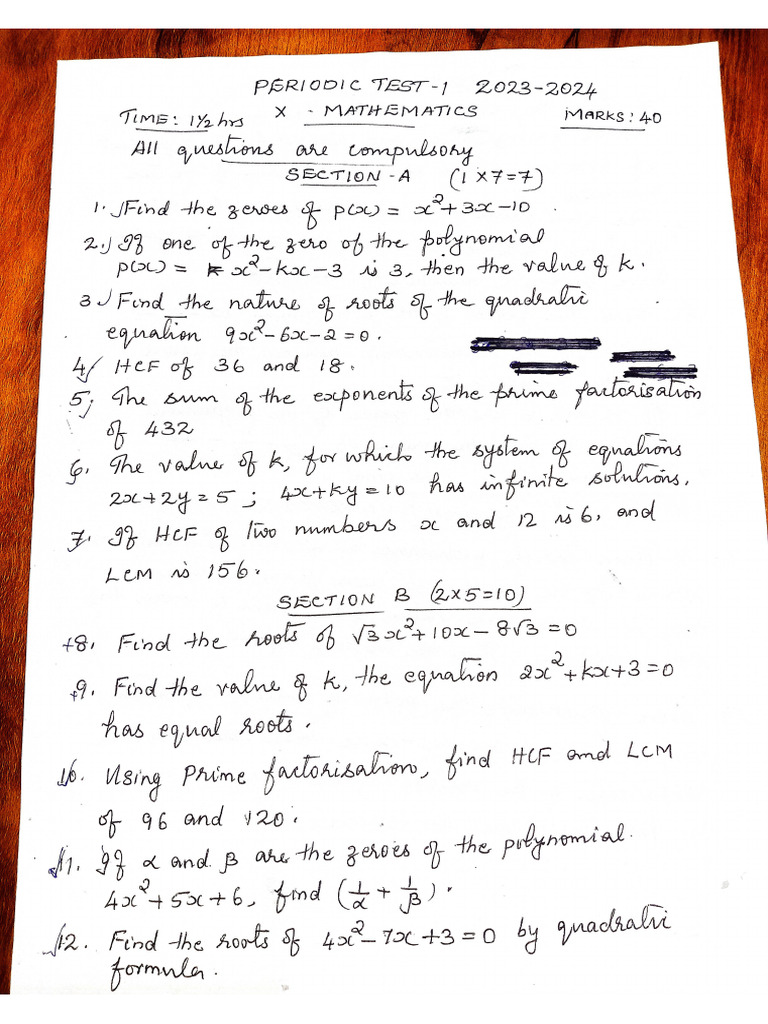 PERIODIC TEST-1 2023-2024
TIME: 1½ hrs X - MATHEMATICS MARKS: 40
All questions are compulsory
SECTION - A (1 x 7 = 7)
1. Find the zeroes of p(x) = x² + 3x - 10.
2. If one of the zero of the polynomial
p(x) = x² - kx - 3 is 3, then the value of k.
3. Find the nature of roots of the quadratic
equation 9x² - 6x - 2 = 0.
4. HCF of 36 and 18.
5. The sum of the exponents of the prime factorisation
of 432
6. The value of k, for which the system of equations
2x + 2y = 5 ; 4x + ky = 10 has infinite solutions.
7. If HCF of two numbers x and 12 is 6, and
LCM is 156.
SECTION B (2x5=10)
8. Find the roots of √3x² + 10x - 8√3 = 0
9. Find the value of k, the equation 2x² + kx + 3 = 0
has equal roots.
10. Using Prime factorisation, find HCF and LCM
of 96 and 120.
11. If α and β are the zeroes of the polynomial.
4x² + 5x + 6, find (1/α + 1/β).
12. Find the roots of 4x² - 7x + 3 = 0 by quadratic
formula.